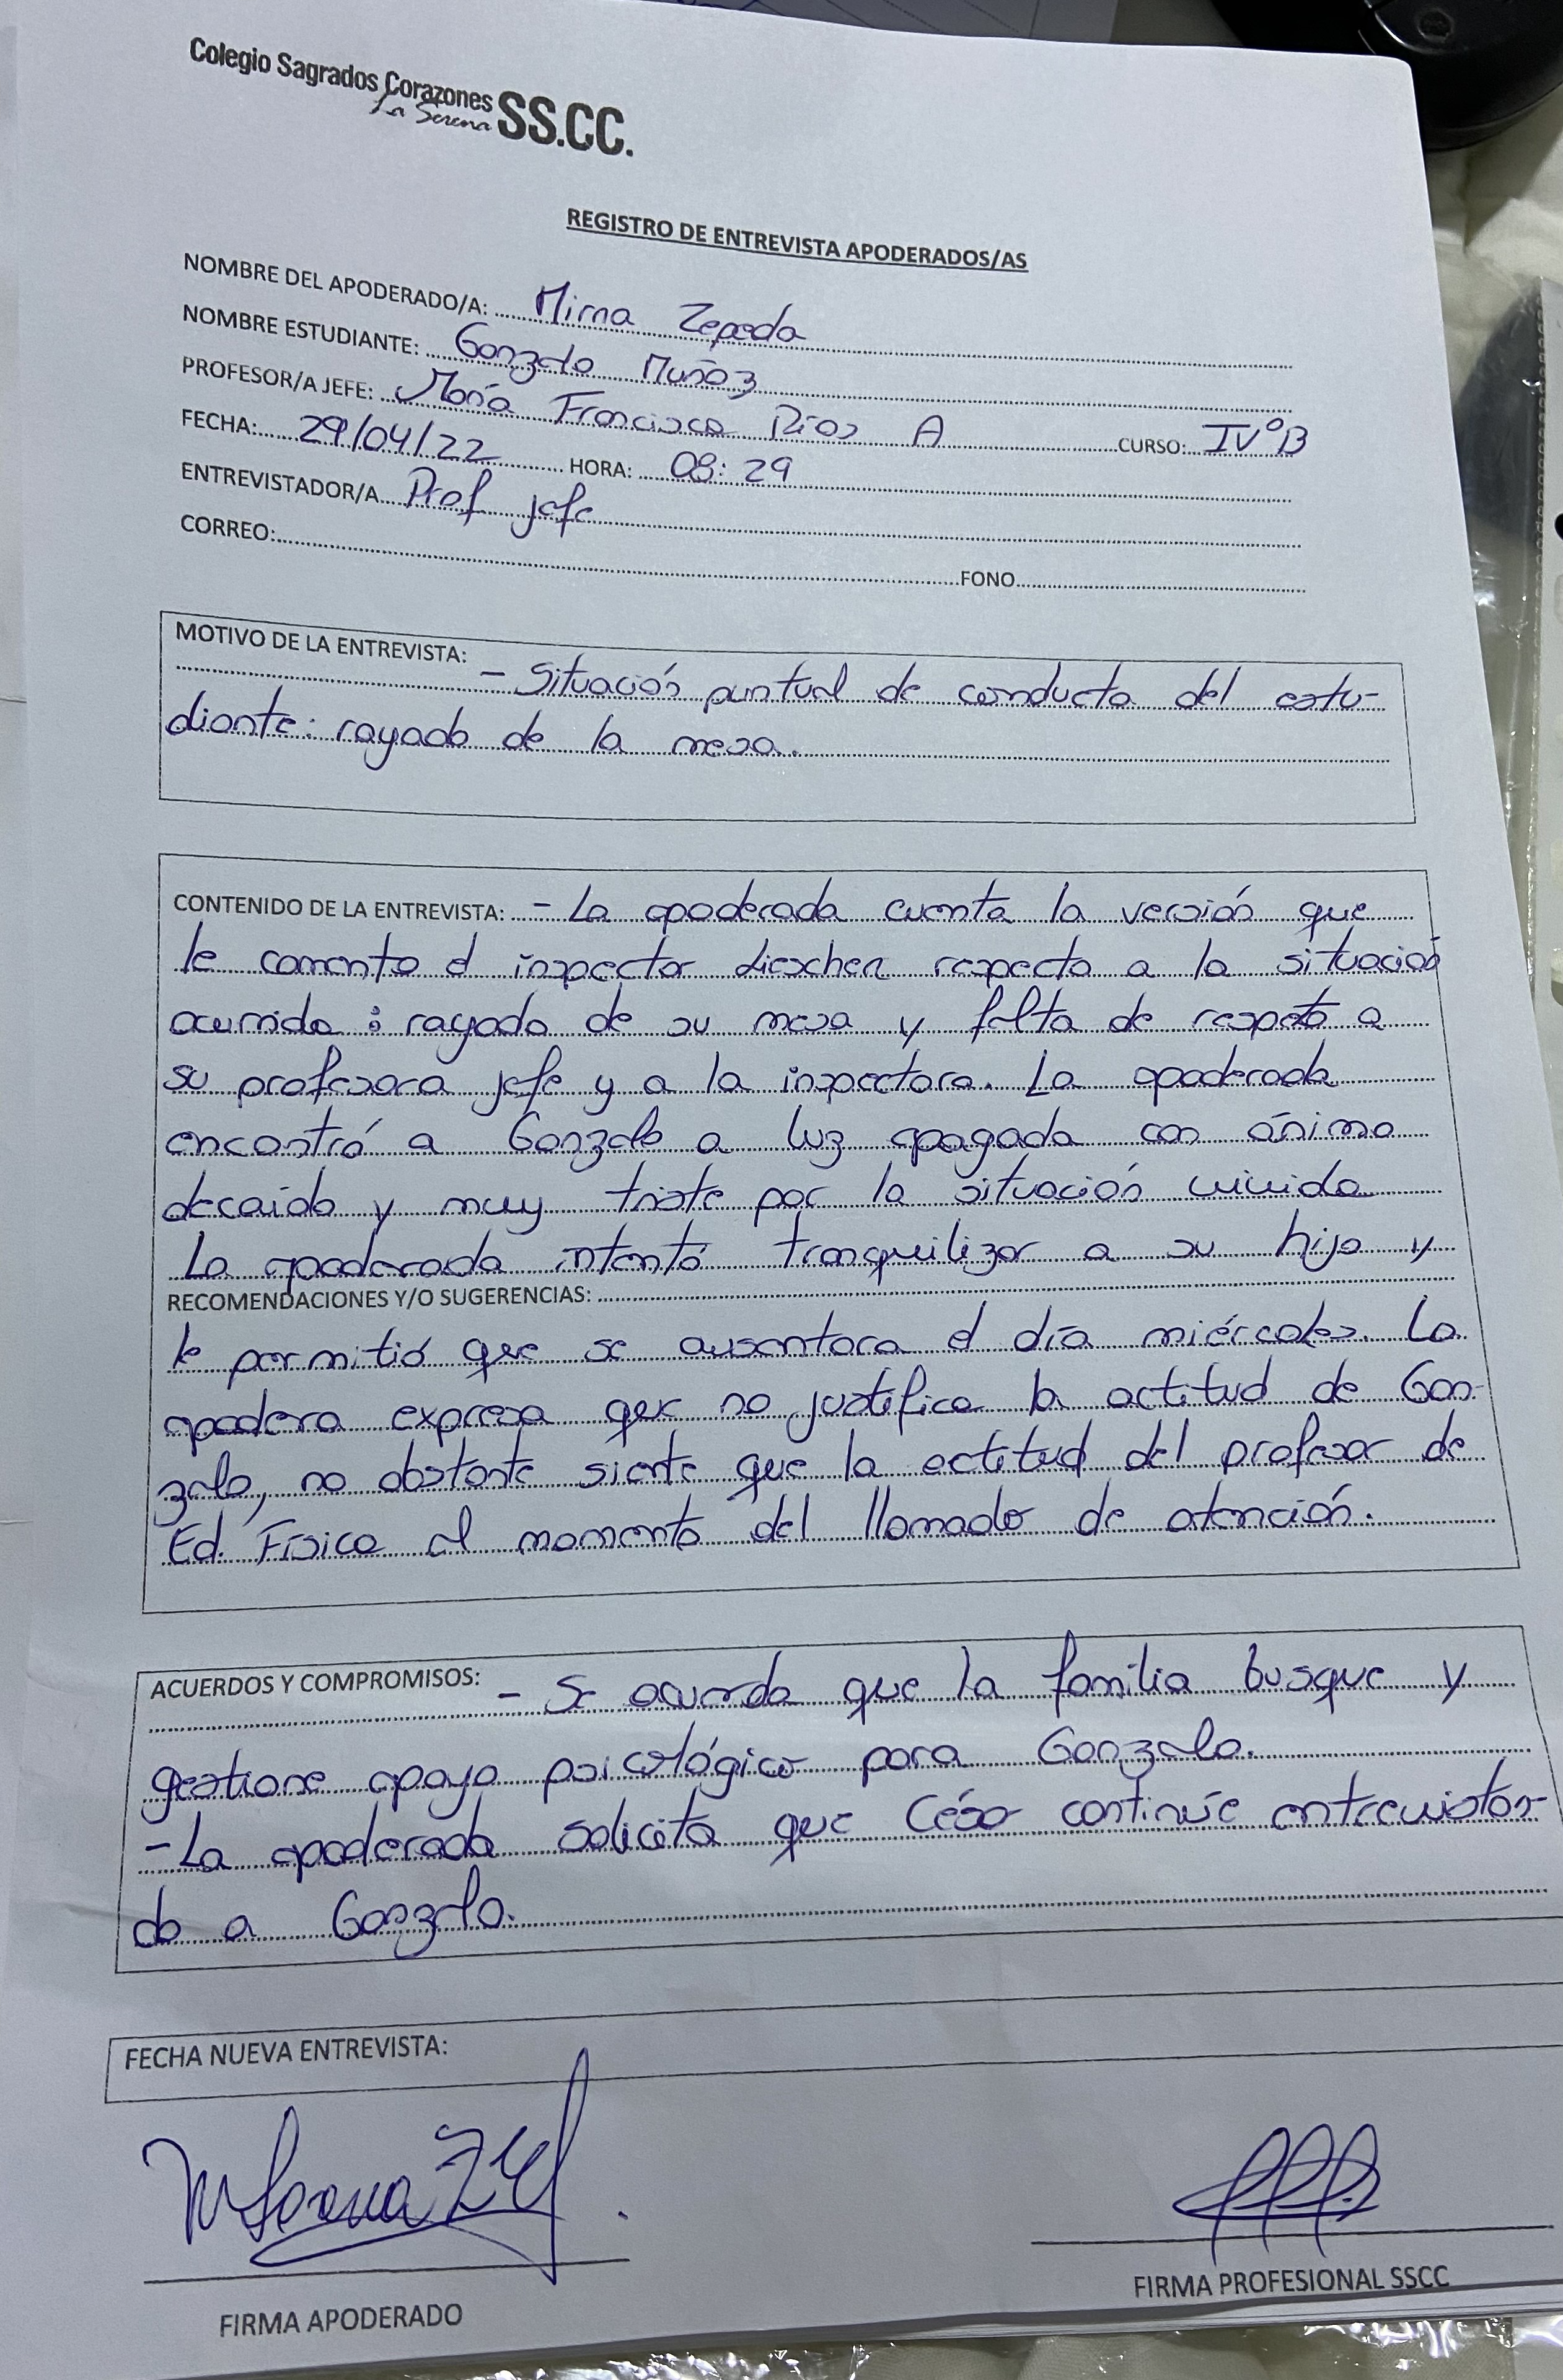 Colegio Sagrados Corazones SS.CC.
La Serena
REGISTRO DE ENTREVISTA APODERADOS/AS
NOMBRE DEL APODERADO/A: Mirna Zepeda
NOMBRE ESTUDIANTE: Gonzalo Muñoz
PROFESOR/A JEFE: María Francisca Ríos A CURSO: IV°B
FECHA: 29/04/22 HORA: 08:29
ENTREVISTADOR/A Prof jefe
CORREO: FONO
MOTIVO DE LA ENTREVISTA:
- Situación puntual de conducta del estu-
diante: rayado de la mesa.
CONTENIDO DE LA ENTREVISTA: - La apoderada cuenta la versión que
le comento el inspector respecto a la situación
ocurrida: rayado de su mesa y falta de respeto a
su profesora jefe y a la inspectora. La apoderada
encontró a Gonzalo a luz apagada con ánimo
decaído y muy triste por la situación vivida
La apoderada intentó tranquilizar a su hijo y
RECOMENDACIONES Y/O SUGERENCIAS:
le permitió que se ausentara el día miércoles. La
apodera expresa que no justifica la actitud de Gon-
zalo, no obstante siente que la actitud del profesor de
Ed. Física al momento del llamado de atención.
ACUERDOS Y COMPROMISOS:
- Se acuerda que la familia busque y
gestione apoyo psicológico para Gonzalo.
- La apoderada solicita que continúe entrevistan-
do a Gonzalo.
FECHA NUEVA ENTREVISTA:
FIRMA APODERADO
FIRMA PROFESIONAL SSCC